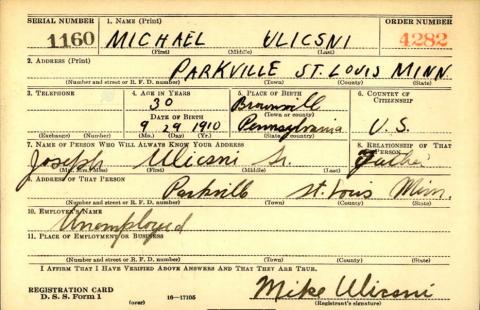 SERIAL NUMBER 1. NAME (Print) ORDER NUMBER
1160 MICHAEL ULICSNI 4282
(First) (Middle) (Last)
2. ADDRESS (Print)
PARKVILLE ST. LOUIS MINN
(Number and street or R. F. D. number) (Town) (County) (State)
3. TELEPHONE 4. AGE IN YEARS 5. PLACE OF BIRTH 6. COUNTRY OF CITIZENSHIP
30 Brownsvill
DATE OF BIRTH (Town or county)
9 29 1910 Pennsylvania U. S.
(Exchange) (Number) (Mo.) (Day) (Yr.) (State or country)
7. NAME OF PERSON WHO WILL ALWAYS KNOW YOUR ADDRESS 8. RELATIONSHIP OF THAT PERSON
Joseph Ulicsni Sr. Father
(Mr., Mrs., Miss) (First) (Middle) (Last)
9. ADDRESS OF THAT PERSON
Parkvill St. Louis Minn.
(Number and street or R. F. D. number) (Town) (County) (State)
10. EMPLOYER'S NAME
Unemployed
11. PLACE OF EMPLOYMENT OR BUSINESS
(Number and street or R. F. D. number) (Town) (County) (State)
I AFFIRM THAT I HAVE VERIFIED ABOVE ANSWERS AND THAT THEY ARE TRUE.
REGISTRATION CARD
D. S. S. Form 1 (over) 16—17105 Mike Ulicsni
(Registrant's signature)